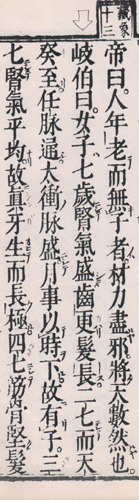 藏象
十三
帝曰人年老而無子者材力盡邪將天數然也
岐伯曰女子七歲腎氣盛齒更髮長二七而天
癸至任脉通太衝脉盛月事以時下故有子三
七腎氣平均故眞牙生而長極四七筋骨堅髮